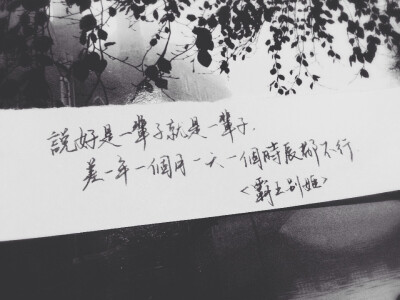 說好是一輩子就是一輩子，
差一年一個月一天一個時辰都不行
<霸王别姬>